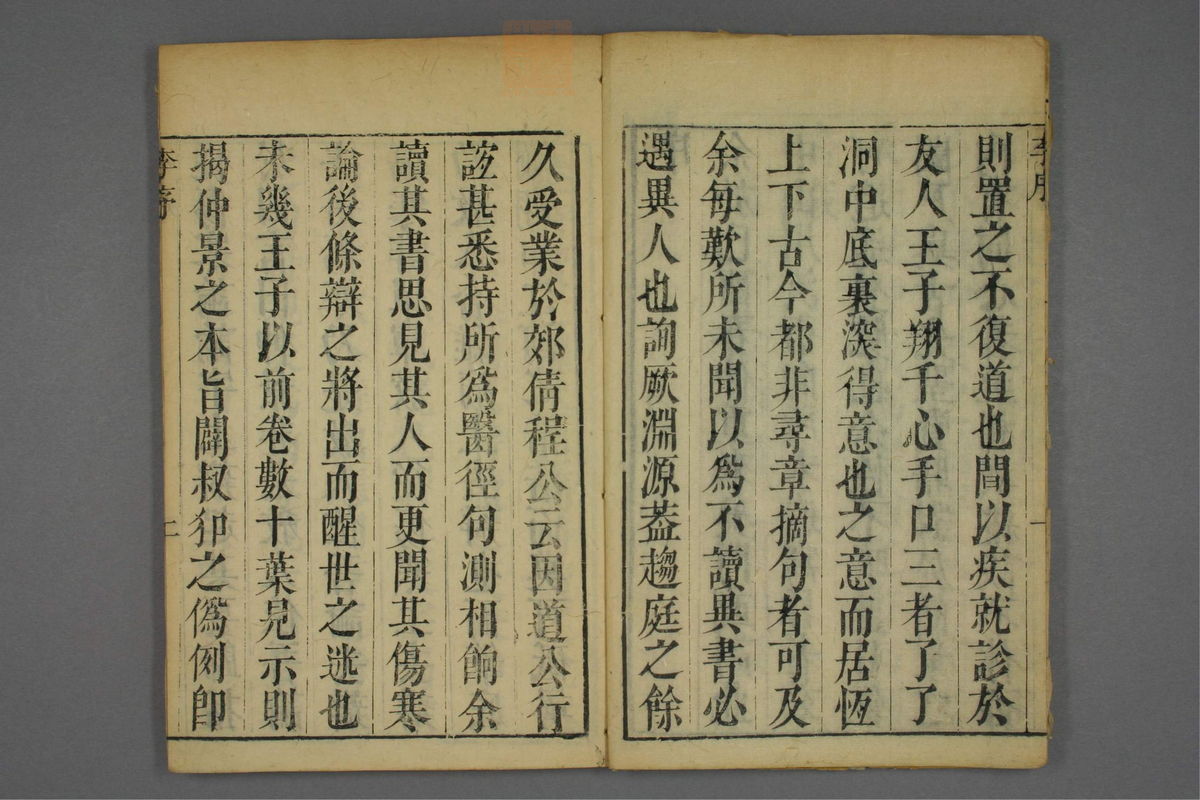 李序
則置之不復道也間以疾就診於
友人王子翔千心手口三者了了
洞中底裏深得意也之意而居恆
上下古今都非尋章摘句者可及
余每歎所未聞以爲不讀異書必
遇異人也詢厥淵源葢趨庭之餘
久受業於郊倩程公云因道公行
誼甚悉持所爲醫徑句測相餉余
讀其書思見其人而更聞其傷寒
論後條辯之將出而醒世之迷也
未幾王子以前卷數十葉見示則
揭仲景之本旨闢叔和之僞例卽
李序